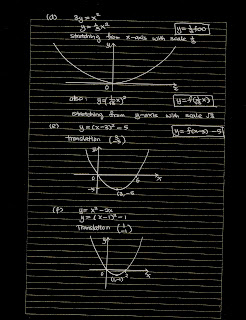 (d) 3y = x²
y = ⅓x²
y = ⅓f(x)
stretching from x-axis with scale ⅓
y
0
x
also: y = (1/√3 x)²
y = f(1/√3 x)
stretching from y-axis with scale √3
(e) y = (x-3)² - 5
y = f(x-3) - 5
translation (3 -5)
y
0
x
-5
(3, -5)
(f) y = x² - 2x
y = (x-1)² - 1
Translation (1 -1)
y
0
x
(1, -1)